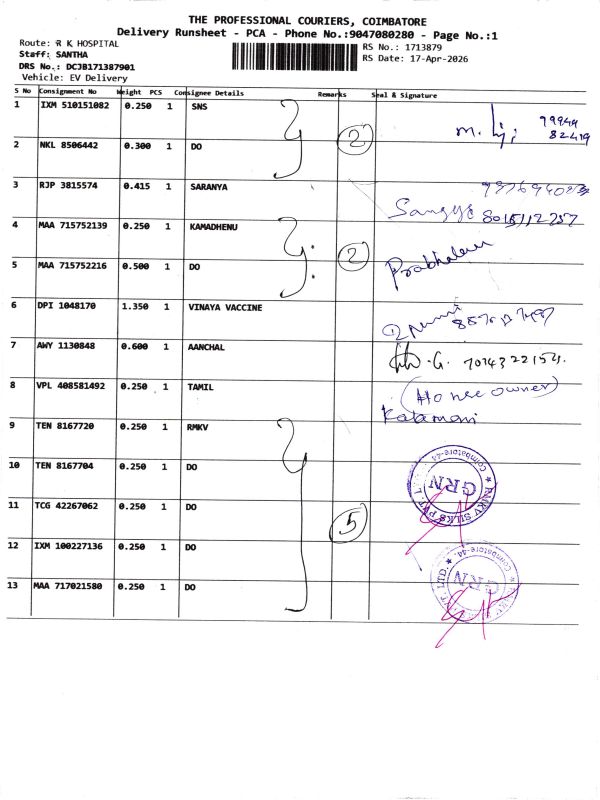 THE PROFESSIONAL COURIERS, COIMBATORE
Delivery Runsheet - PCA - Phone No.:9047080280 - Page No.:1
Route: R K HOSPITAL
RS No.: 1713879
Staff: SANTHA
RS Date: 17-Apr-2026
DRS No.: DCJB171387901
Vehicle: EV Delivery
S No Consignment No Weight PCS Consignee Details Remarks Seal & Signature
1 IXM 510151082 0.250 1 SNS
2 NKL 8506442 0.300 1 DO 2 99944 82419
3 RJP 3815574 0.415 1 SARANYA
4 MAA 715752139 0.250 1 KAMADHENU
5 MAA 715752216 0.500 1 DO 2 Prabhakaran
6 DPI 1048170 1.350 1 VINAYA VACCINE
7 AWY 1130848 0.600 1 AANCHAL 7014322154.
8 VPL 408581492 0.250 1 TAMIL (House owner) Kalamani
9 TEN 8167720 0.250 1 RMKV
10 TEN 8167704 0.250 1 DO
11 TCG 42267062 0.250 1 DO 5
12 IXM 100227136 0.250 1 DO
13 MAA 717021580 0.250 1 DO
RMKV SILKS PVT. LTD. GRN Coimbatore-44.
GRN Coimbatore-44.